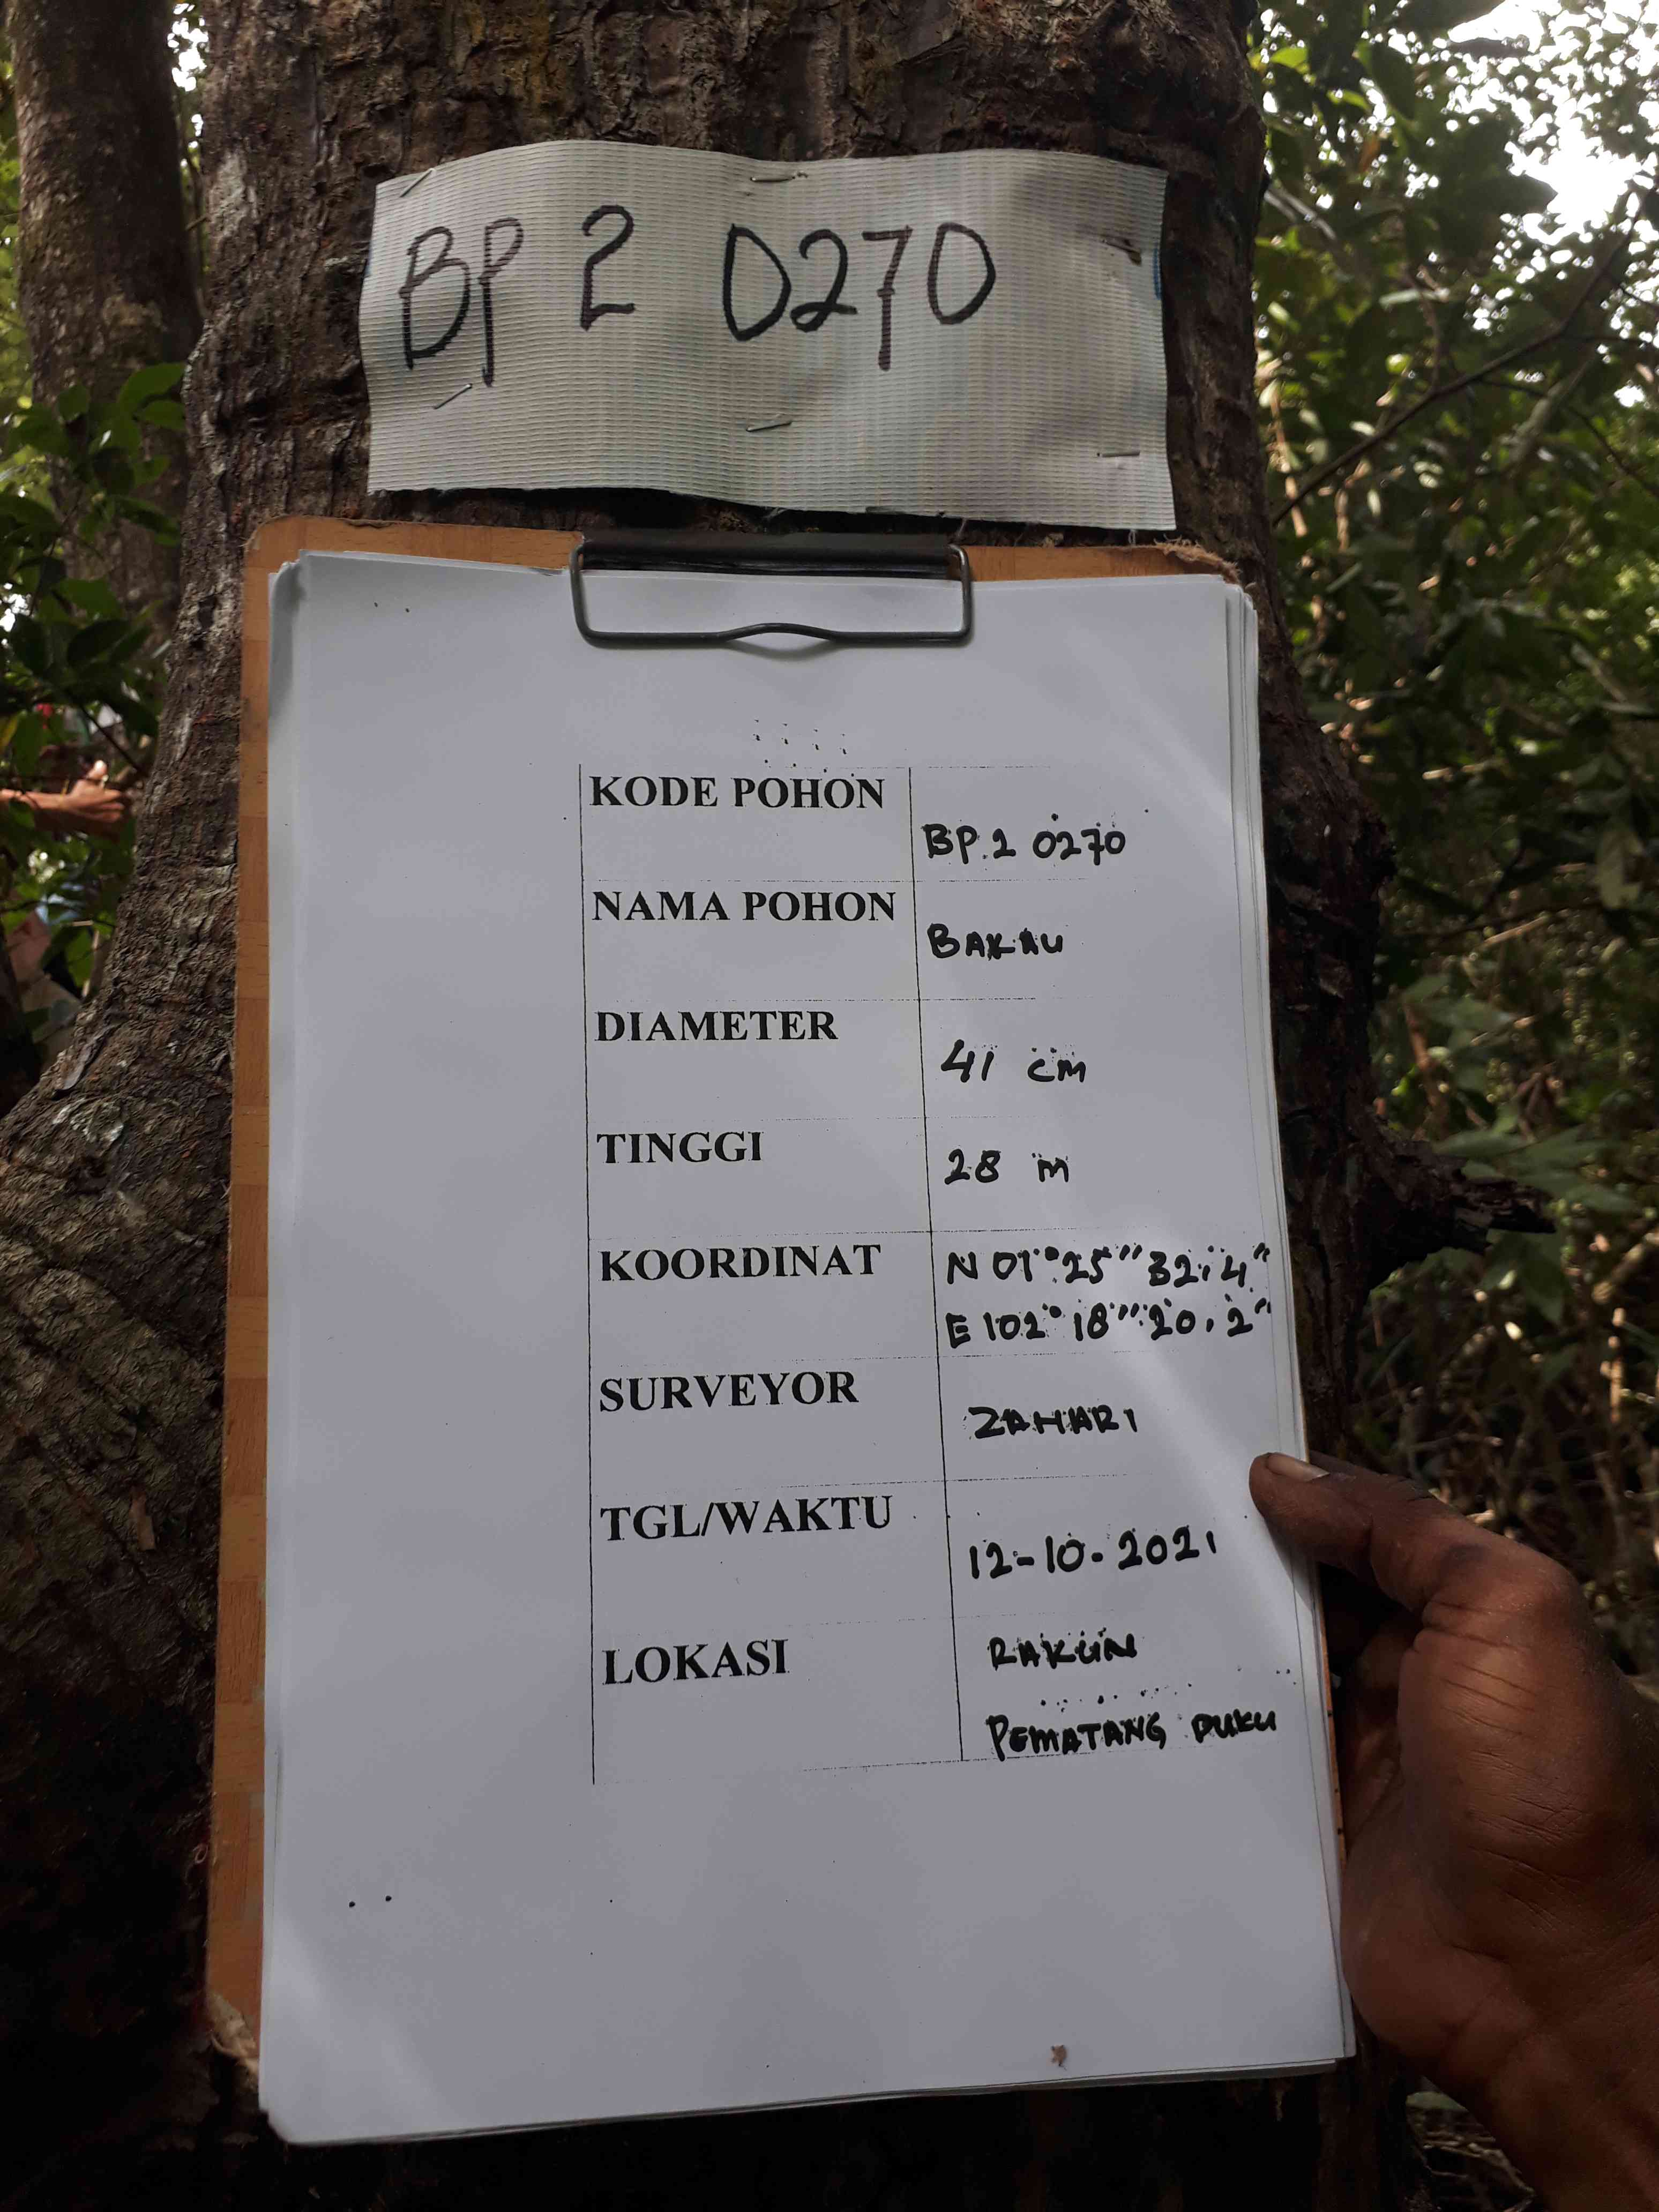 BP 2 0270
KODE POHON
BP.2 0270
NAMA POHON
BAKAU
DIAMETER
41 cm
TINGGI
28 m
KOORDINAT
N 01° 25" 32.4"
E 102° 18" 20.2"
SURVEYOR
ZAHARI
TGL/WAKTU
12-10-2021
LOKASI
RAKUN
PEMATANG DUKU